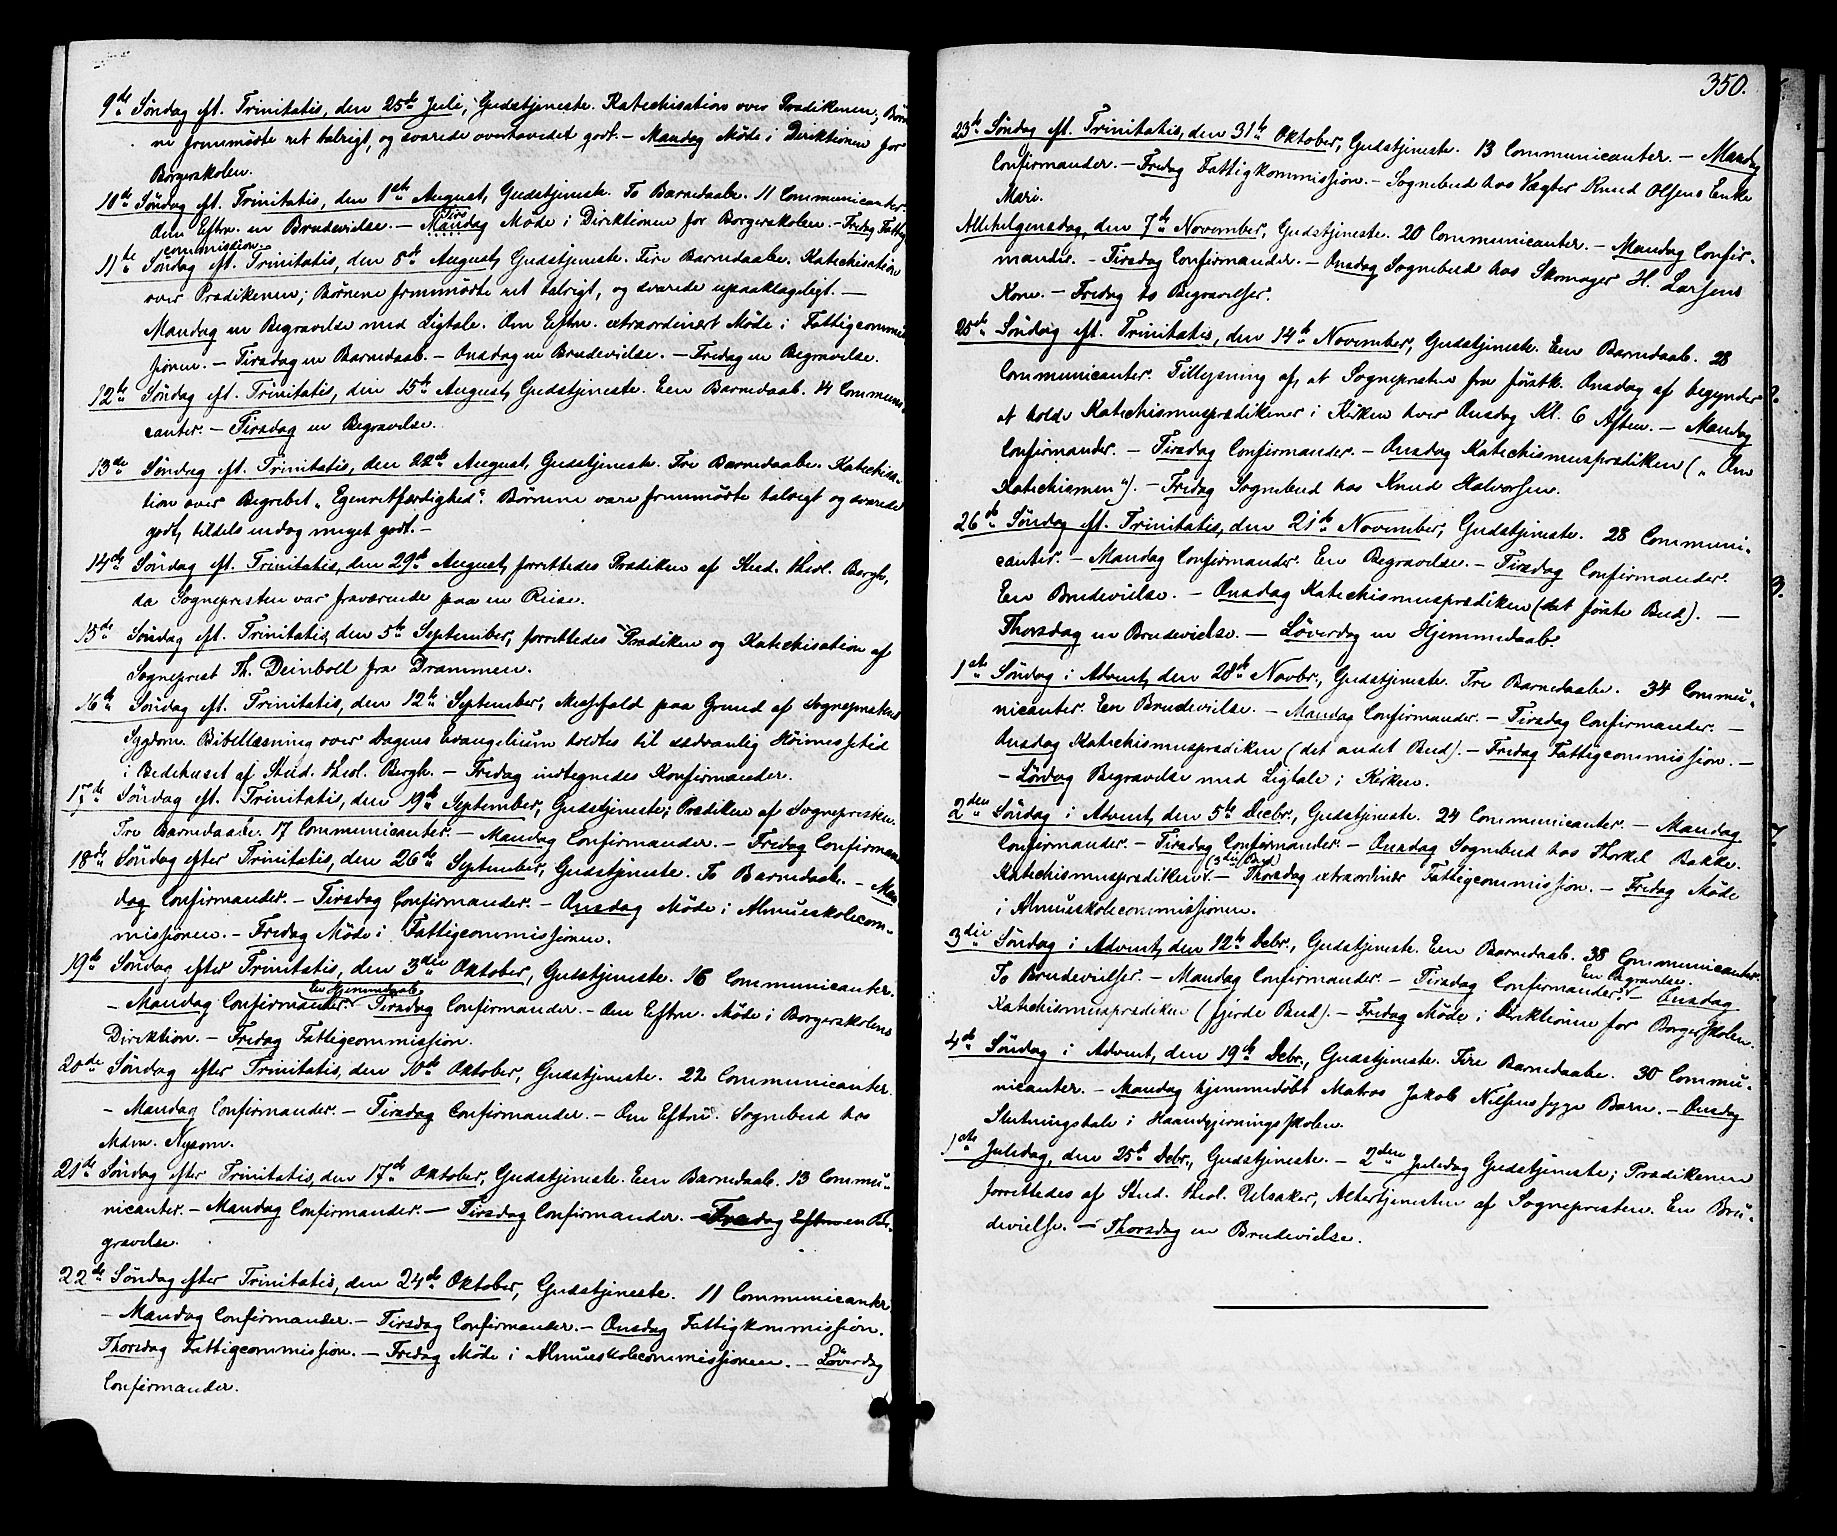 9de Søndag eft. Trinitatis, den 25de Juli, Gudstjeneste. Katechisation over Prædikenen; Bør-
ne fremmødte ret talrigt, og svarede overhovedet godt. – Mandag Møde i Direktionen for
Borgerskolen.
10de Søndag eft. Trinitatis, den 1ste August, Gudstjeneste. To Barnedaabe. 11 Communicanter.
Om Eftm. en Brudevielse. – Mandag Tirs Møde i Direktionen for Borgerskolen. – Fredag Fattig
commission.
11te Søndag eft. Trinitatis, den 8de August, Gudstjeneste. Fire Barnedaabe. Katechisation
over Prædikenen; Børnene fremmødte ret talrigt, og svarede upaaklageligt. –
Mandag en Begravelse med Ligtale. Om Eftm. extraordinært Møde i Fattigcommis-
sionen. – Tirsdag en Barnedaab. – Onsdag en Brudevielse. – Fredag en Begravelse.
12te Søndag eft. Trinitatis, den 15de August, Gudstjeneste. Een Barnedaab. 14 Communi-
canter. – Tirsdag en Begravelse.
13de Søndag eft. Trinitatis, den 22de August, Gudstjeneste. Tre Barnedaabe. Katechisa-
tion over Begrebet „Egenretfærdighed“. Børnene vare fremmødte talrigt og svarede
godt, tildels endog meget godt. –
14de Søndag eft. Trinitatis, den 29de August, forrettedes Prædiken af Stud. theol. Bergh,
da Sognepresten var fraværende paa en Reise.
15de Søndag eft. Trinitatis, den 5te September, forrettedes Prædiken og Katechisation af
Sogneprest Th. Deinboll fra Drammen.
16de Søndag eft. Trinitatis, den 12te September, Messefald paa Grund af Sogneprestens
Sygdom. Bibellæsning over Dagens Evangelium holdtes til sædvanlig Høimessetid
i Bedehuset af Stud. theol. Bergh. – Fredag indtegnedes Konfirmander.
17de Søndag eft. Trinitatis, den 19de September, Gudstjeneste; Prædiken af Sognepresten.
Tre Barnedaabe. 17 Communicanter. – Mandag Confirmander. – Fredag Confirman
18de Søndag efter Trinitatis, den 26de September, Gudstjeneste. To Barnedaabe. – Man
dag Confirmander. – Tirsdag Confirmander. – Onsdag Møde i Almueskolecom-
missionen. – Fredag Møde i Fattigcommissionen.
19de Søndag efter Trinitatis, den 3die Oktober, Gudstjeneste. 16 Communicanter.
– Mandag Confirmander. En Hjemmedaab. Tirsdag Confirmander. – Om Eftm. Møde i Borgerskolens
Direktion. – Fredag Fattigcommission.
20de Søndag efter Trinitatis, den 10de Oktober, Gudstjeneste. 22 Communicanter.
– Mandag Confirmander. – Tirsdag Confirmander. – Om Eftm. Sognebud hos
Mdm. Nysom.
21de Søndag efter Trinitatis, den 17de Oktober, Gudstjeneste. Een Barnedaab. 13 Commu-
nicanter. – Mandag Confirmander. – Tirsdag Confirmander. – Fredag Eftm en Be-
gravelse.
22de Søndag efter Trinitatis, den 24de Oktober, Gudstjeneste. 11 Communicanter
– Mandag Confirmander. – Tirsdag Confirmander. – Onsdag Fattigkommission.
Thorsdag Fattigcommission. – Fredag Møde i Almueskolecommissionen. – Løverdag
Confirmander.
350.
23de Søndag eft. Trinitatis, den 31te Oktober, Gudstjeneste. 13 Communicanter. – Mandag
Confirmander. – Fredag Fattigkommission. – Sognebud hos Vægter Knud Olsens Enke
Mari.
Allehelgensdag, den 7de November, Gudstjeneste. 20 Communicanter. – Mandag Confir-
mander. – Tirsdag Confirmander. – Onsdag Sognebud hos Skomager H. Larsens
Kone. – Fredag to Begravelser.
25de Søndag eft. Trinitatis, den 14de November, Gudstjeneste. Een Barnedaab. 28
Communicanter. Tillysning af, at Sognepresten fra førstk. Onsdag af begynder
at holde Katechismusprædikener i Kirken hver Onsdag Kl. 6 Aften. – Mandag
Confirmander. – Tirsdag Confirmander. – Onsdag Katechismusprædiken („Om
Katechismen“). – Fredag Sognebud hos Knud Halvorsen.
26de Søndag eft. Trinitatis, den 21de November, Gudstjeneste. 28 Communi-
canter. – Mandag Confirmander. En Begravelse. – Tirsdag Confirmander.
En Brudevielse. – Onsdag Katechismusprædiken (det første Bud). –
Thorsdag en Brudevielse. – Løverdag en Hjemmedaab.
1ste Søndag i Advent, den 28de Novbr., Gudstjeneste. Tre Barnedaabe. 34 Commu-
nicanter. En Brudevielse. – Mandag Confirmander. – Tirsdag Confirmander. –
Onsdag Katechismusprædiken (det andet Bud). – Fredag Fattigcommission. –
– Lördag Begravelse med Ligtale i Kirken.
2den Søndag i Advent, den 5te Decbr., Gudstjeneste. 24 Communicanter. – Mandag
Confirmander. – Tirsdag Confirmander. – Onsdag Sognebud hos Thorkel Bakke.
Katechismusprædiken (3die Bud). – Thorsdag extraordinær Fattigcommission. – Fredag Møde
i Almueskolecommissionen.
3die Søndag i Advent, den 12te Debr., Gudstjeneste. Een Barnedaab. 38 Communicanter.
To Brudevielser. – Mandag Confirmander. – Tirsdag Confirmander. En Begravelse. – Onsdag
Katechismusprædiken (fjerde Bud). – Fredag Møde i Direktionen for Borgerskolen.
4de Søndag i Advent, den 19de Debr., Gudstjeneste. Fire Barnedaabe. 30 Commu-
nicanter. – Mandag hjemmedøbt Matros Jakob Nilsens syge Barn. – Onsdag
Slutningstale i Haandgjerningsskolen.
1ste Juledag, den 25de Debr., Gudstjeneste. – 2den Juledag Gudstjeneste; Prædikenen
forrettedes af Stud. theol. Ulsaker, Altertjenesten af Sognepresten. En Bru-
devielse. – Thorsdag en Brudevielse.